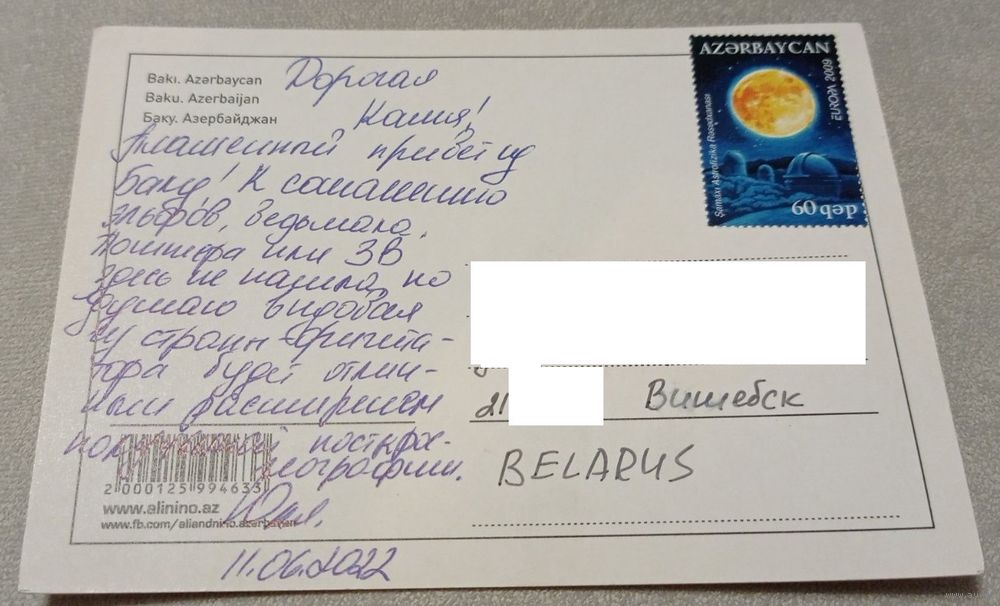 Bakı. Azərbaycan
Baku. Azerbaijan
Баку. Азербайджан
Дорогая
Калия!
Пламенный привет из
Баку! К сожалению
эльфов, ведьмака,
Поттера или ЗВ
здесь не нашла, но
думаю видовая
из страны
будет отлич-
ным расширением
посткрос-
географии.
Юля.
11.06.2022
2 000125 994633
www.alinino.az
www.fb.com/aliandnino.azerbaycan
AZƏRBAYCAN
EUROPA 2009
Şamaxı Astrofizika Rəsədxanası
60 qəp
21
Витебск
BELARUS